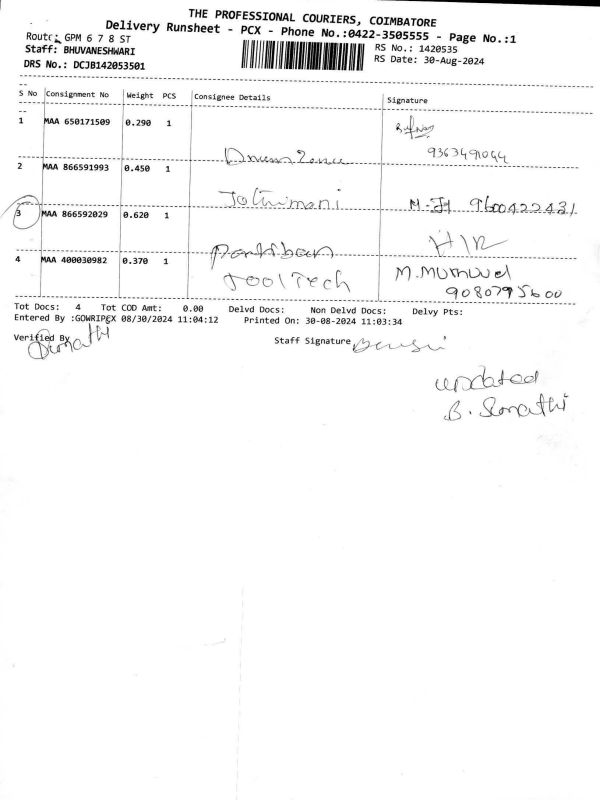 THE PROFESSIONAL COURIERS, COIMBATORE
Delivery Runsheet - PCX - Phone No.:0422-3505555 - Page No.:1
Route: GPM 6 7 8 ST
RS No.: 1420535
Staff: BHUVANESHWARI
RS Date: 30-Aug-2024
DRS No.: DCJB142053501
S No Consignment No Weight PCS Consignee Details Signature
1 MAA 650171509 0.290 1
9363491044
2 MAA 866591993 0.450 1
Jothimani M. 9600422431
3 MAA 866592029 0.620 1
Parthiban
4 MAA 400030982 0.370 1
Tool Tech M. 9080795600
Tot Docs: 4 Tot COD Amt: 0.00 Delvd Docs: Non Delvd Docs: Delvy Pts:
Entered By :GOWRIPCX 08/30/2024 11:04:12 Printed On: 30-08-2024 11:03:34
Verified By Staff Signature
Sumathi
updated
B. Sumathi